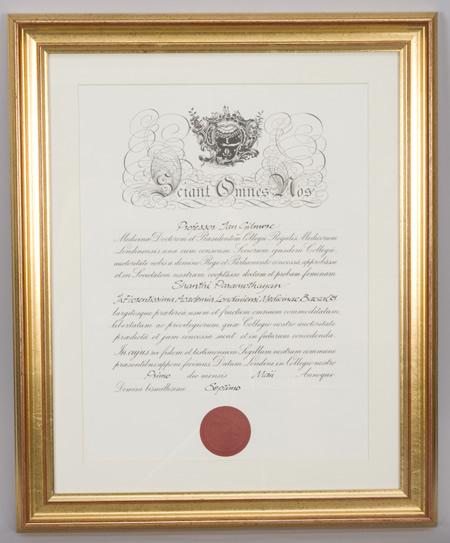 Sciant Omnes Nos
Professor Ian Gilmore
Medicinæ Doctorem et Præsidentem Collegii Regalis Medicorum
Londinensis una cum consensu Sociorum ejusdem Collegii
auctoritate nobis a domino Rege et Parliamento concessa approbâsse
et in Societatem nostram cooptâsse doctam et probam feminam
Shanthi Paramothayan
In Florentissima Academia Londiniensi Medicinae Bacc
largitosque præterea usum et fructum omnium commoditatum,
libertatum ac privilegiorum quæ Collegio nostro auctoritate
prædicta et jam concessa sunt et in futurum concedenda.
In cujus rei fidem et testimonium Sigillum nostrum commune
præsentibus apponi fecimus. Datum Londini in Collegio nostro
Primo die mensis Maii Annoque
Domini bismillesimo Septimo